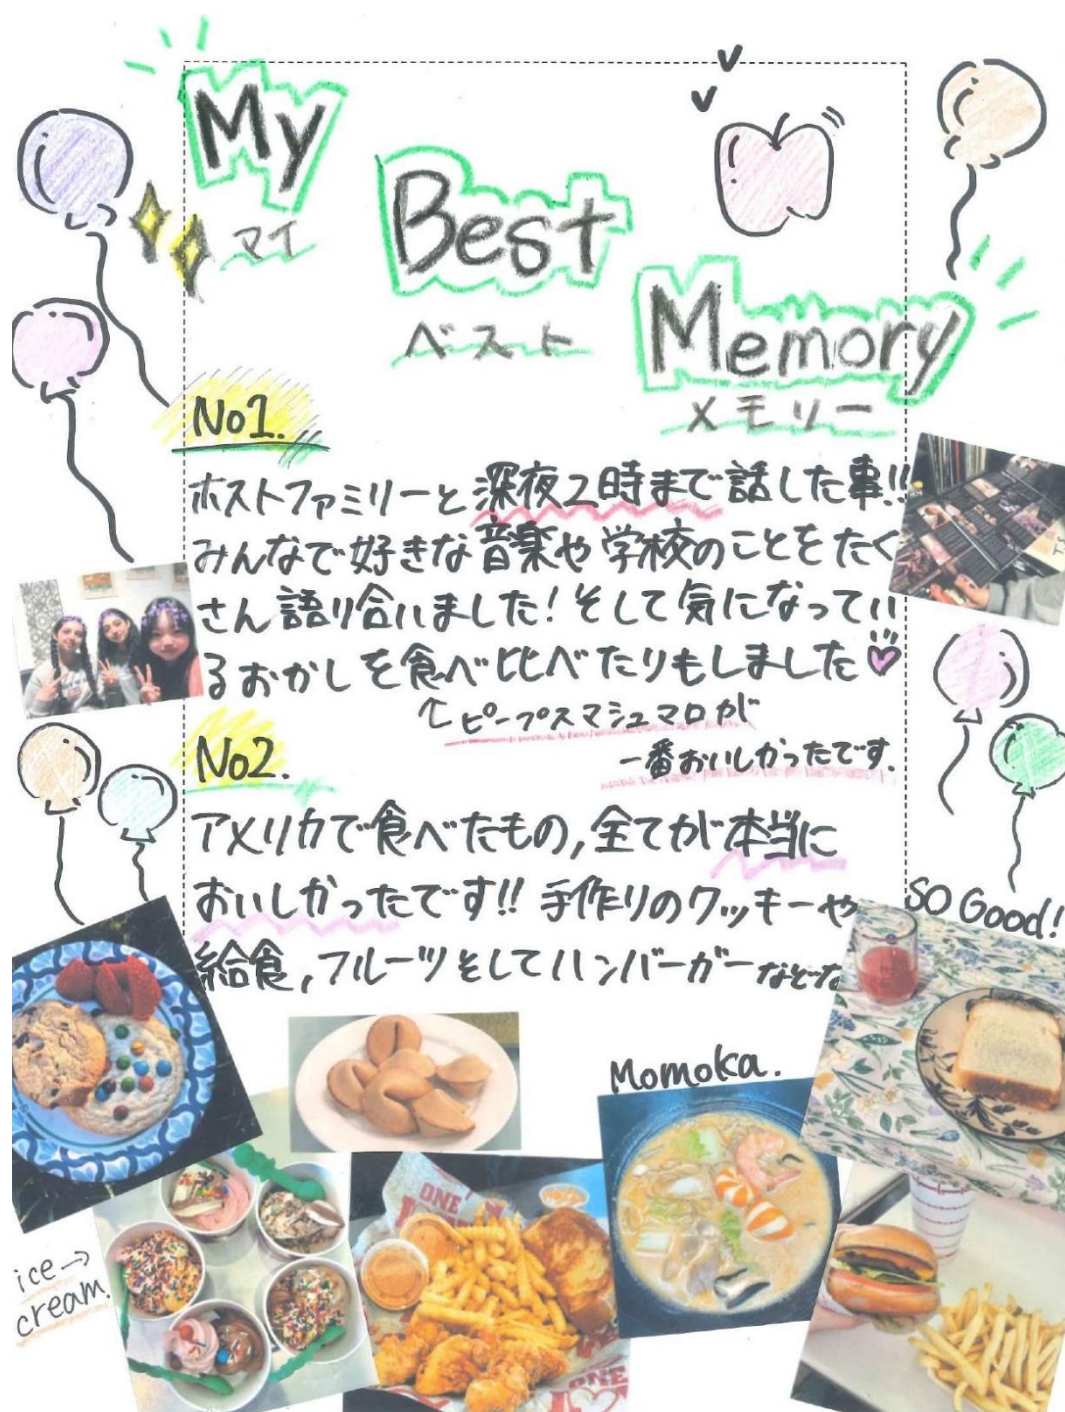 My
マイ
Best
ベスト
Memory
メモリー
No1.
ホストファミリーと深夜2時まで話した事!!
みんなで好きな音楽や学校のことをたく
さん語り合いました！そして気になってい
るおかしを食べ比べたりもしました
↑ピープスマシュマロが
一番おいしかったです.
No2.
アメリカで食べたもの,全てが本当に
おいしかったです!! 手作りのクッキーや
給食,フルーツそしてハンバーガーなどな
SO Good!
Momoka.
ice→
cream.
ONE
ONE